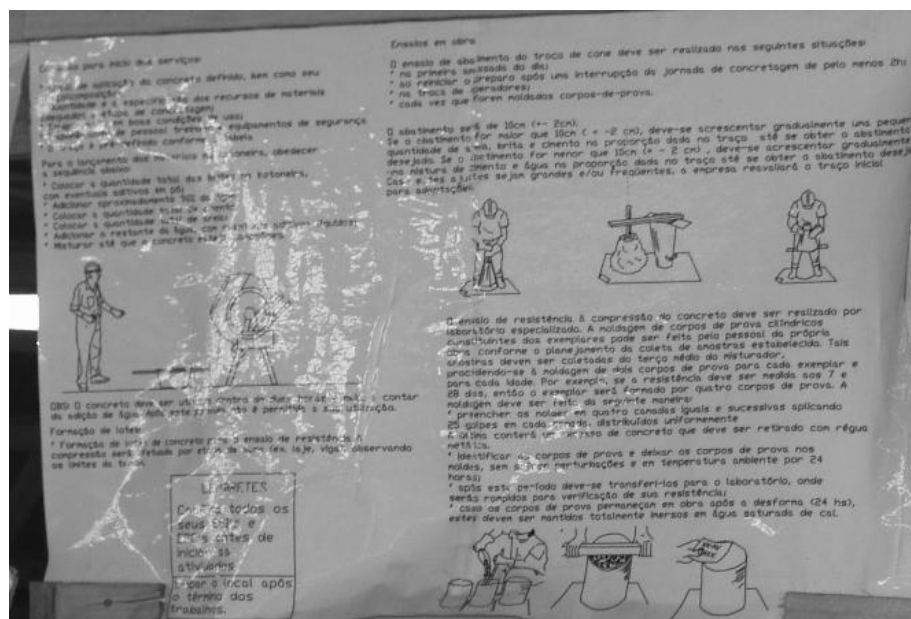 para início dos serviços:
de aplicação do concreto definido, bem como seu
quantidade e a especificação dos recursos de materiais
em boas condições de uso;
de pessoal equipamentos de segurança
Para o lançamento dos materiais na betoneira, obedecer
a sequência abaixo:
* Colocar a quantidade total de na betoneira,
com eventuais aditivos em pó;
* Adicionar aproximadamente
* Colocar a quantidade total de cimento;
* Colocar a quantidade total de areia;
* Adicionar o restante da água, com eventuais aditivos líquidos;
* Misturar até que o concreto esteja
OBS: O concreto deve ser dentro de a contar
da adição de água. Após este não é permitida a sua utilização.
Formação de lotes:
* Formação de lotes de concreto para o ensaio de resistência à
compressão será efetuado por etapa de obra (ex. laje, vigas), observando
os limites da
LEMBRETES
Confira todos os
seus e
antes de
iniciar as
atividades
Limpar o local após
o término dos
trabalhos.
Ensaios em obra
O ensaio de abatimento do troco de cone deve ser realizado nas seguintes situações:
* na primeira amassada do dia;
* ao reiniciar o preparo após uma interrupção da jornada de concretagem de pelo menos 2h;
* na troca de operadores;
* cada vez que forem moldados corpos-de-prova.
O abatimento será de 10cm (+- 2cm).
Se o abatimento for maior que 10cm ( + -2 cm), deve-se acrescentar gradualmente uma
quantidade de areia, brita e cimento na proporção dada no traço até se obter o abatimento
desejado. Se o abatimento for menor que 10cm (+ - 2 cm), deve-se acrescentar gradualmente
mistura de cimento e água na proporção dada no traço até se obter o abatimento
Caso estes ajustes sejam grandes e/ou freqüentes, a empresa reavaliará o traço inicial
para adaptações.
O ensaio de resistência à compressão do concreto deve ser realizado por
laboratório especializado. A moldagem de corpos de prova cilíndricos
constituintes dos exemplares pode ser feita pelo pessoal da própria
obra conforme o planejamento da coleta de amostras estabelecida. Tais
amostras devem ser coletadas do terço médio do misturador,
procedendo-se à moldagem de dois corpos de prova para cada exemplar e
para cada idade. Por exemplo, se a resistência deve ser medida aos 7 e
28 dias, então o exemplar será formado por quatro corpos de prova. A
moldagem deve ser feita da seguinte maneira:
* preencher os moldes em quatro camadas iguais e sucessivas aplicando
25 golpes em cada camada, distribuídos uniformemente
A última conterá um excesso de concreto que deve ser retirado com régua
metálica.
* identificar os corpos de prova e deixar os corpos de prova nos
moldes, sem sofrer perturbações e em temperatura ambiente por 24
horas;
* após este período deve-se transferi-los para o laboratório, onde
serão rompidos para verificação de sua resistência;
* caso os corpos de prova permaneçam em obra após a desforma (24 hs),
estes devem ser mantidos totalmente imersos em água saturada de cal.